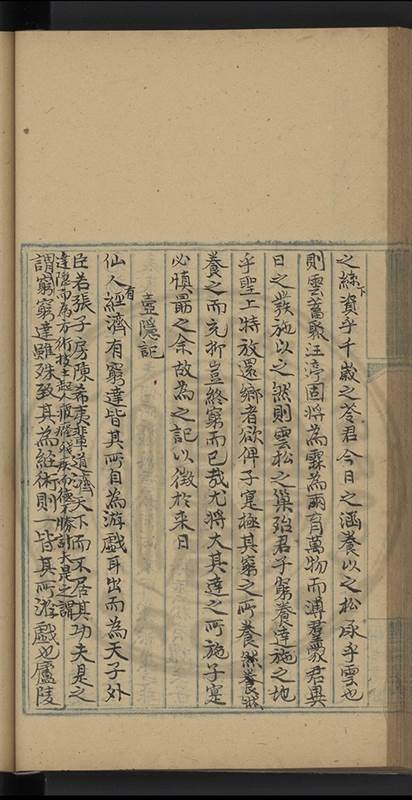 之絲下資乎千歲之苓君今日之涵養以之松承乎雲也
則雲蓄聚汪渟固將為霖為雨育萬物而溥羣蒙君異
日之發施以之然則雲松之巢殆君子窮養達施之地
乎聖上特放還鄉者欲俾子寔極其窮之所養然養
養之而充抑豈終窮而已哉尤將大其達之所施子寔
必慎勗之余故為之記以徵於來日
壺隱記
仙人有經濟有窮達皆其所自為游戲耳出而為天子外
臣若張子房陳希夷輩道濟天下而不居其功夫是之
達隱而為方術技士起人痼癃殘疾而德不勝計夫是之謂
謂窮窮達雖殊致其為經術則一皆其所游戲也廬陵